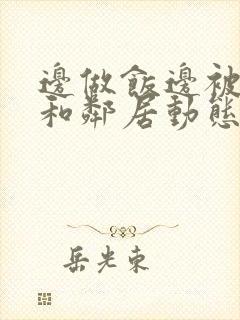 邊做飯邊被
和鄰居動態
岳光東